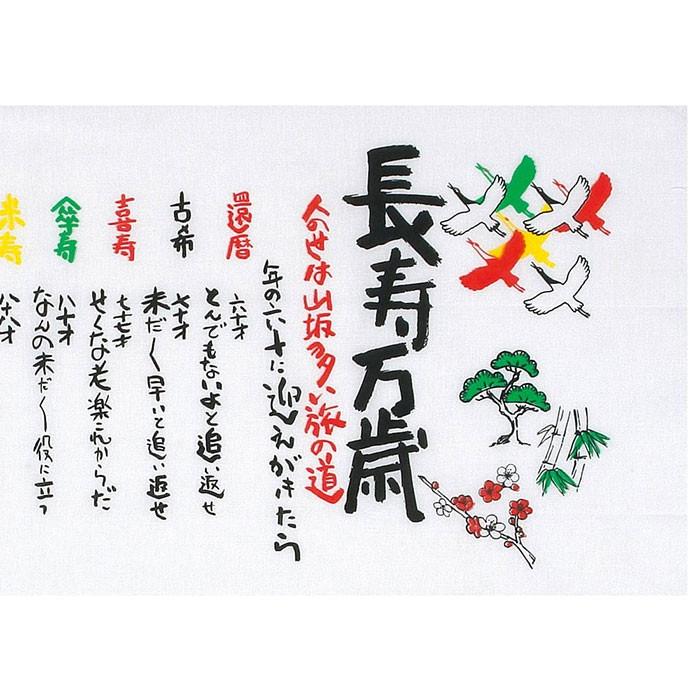 長寿万歳
人の世は山坂多い旅の道
年の六十に迎えがきたら
還暦
六十才
とんでもないよと追い返せ
古希
七十才
未だ〱早いと追い返せ
喜寿
七十七才
せくな老楽これからだ
傘寿
八十才
なんの未だ〱役に立つ
米寿
八十八才